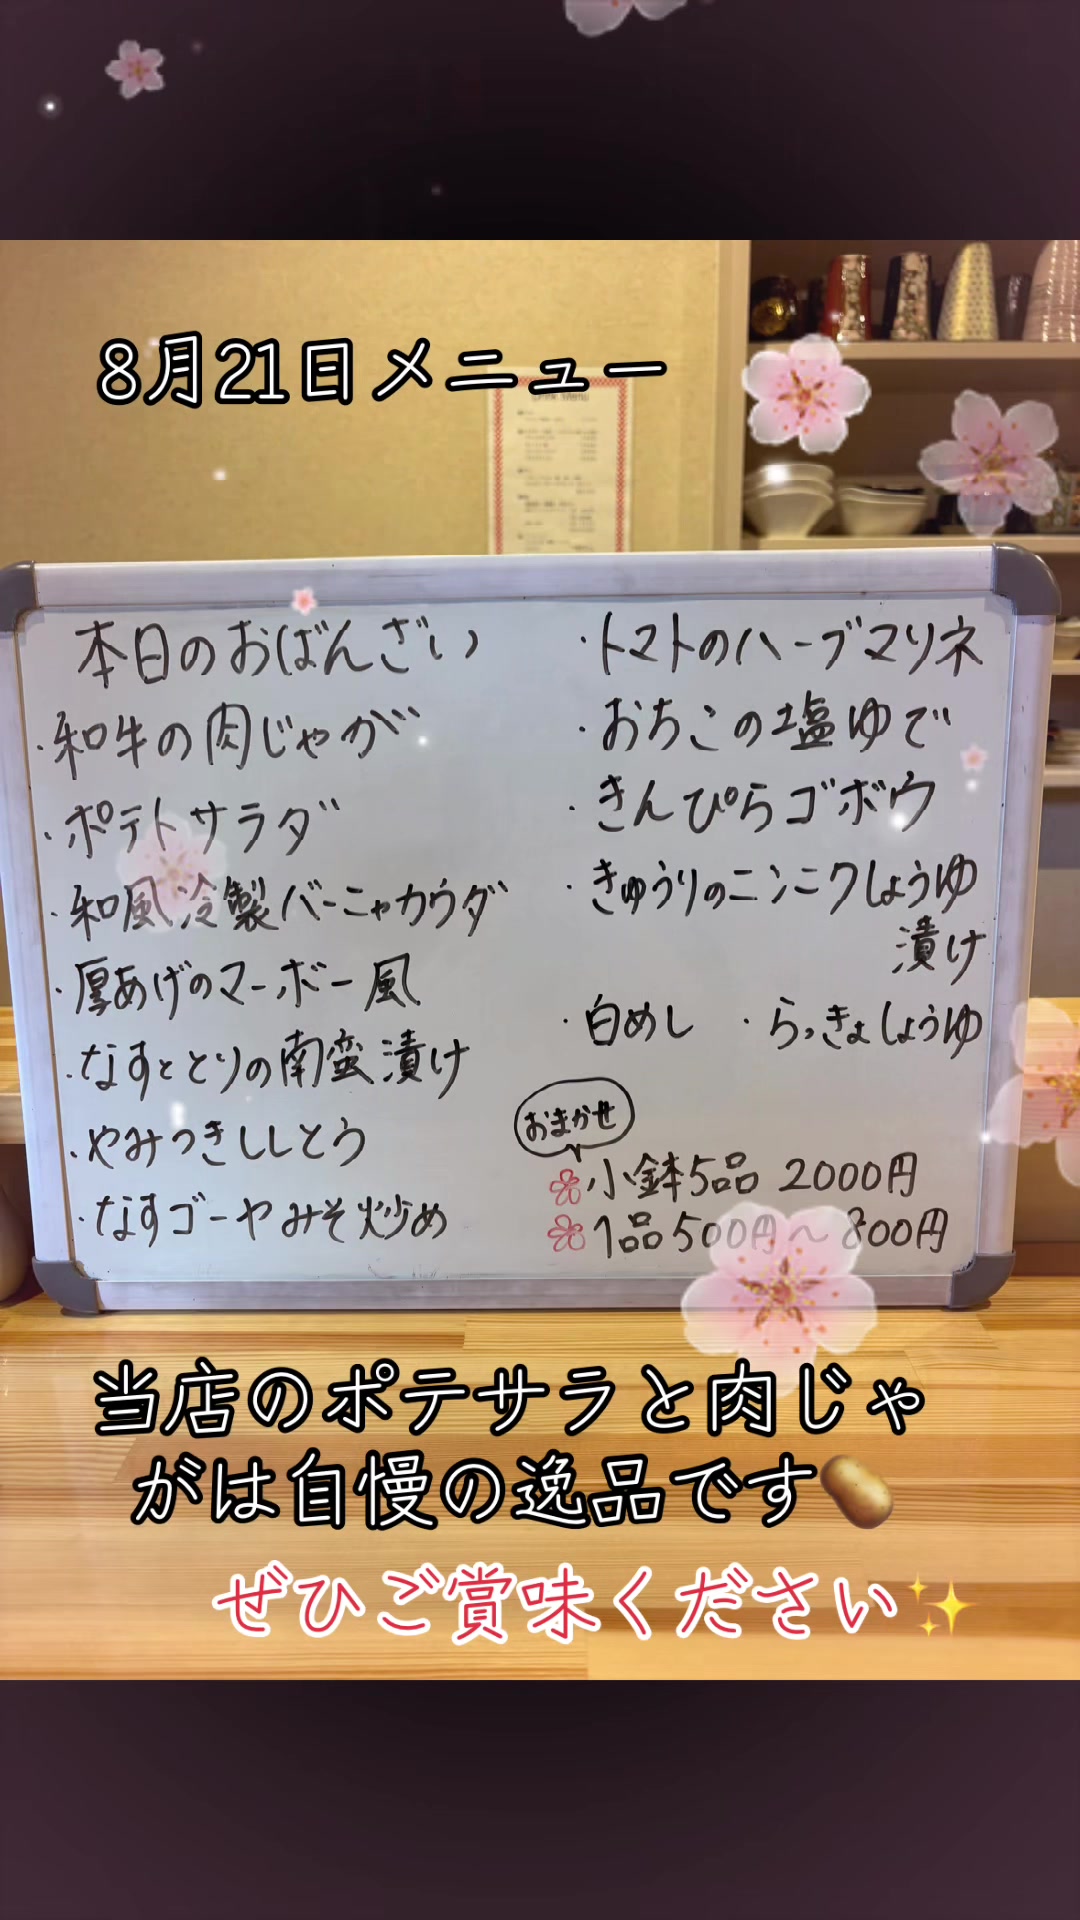 8月21日メニュー
Drink Menu
本日のおばんざい
・和牛の肉じゃが
・ポテトサラダ
・和風冷製バーニャカウダ
・厚あげのマーボー風
・なすととりの南蛮漬け
・やみつきししとう
・なすゴーヤみそ炒め
・トマトのハーブマリネ
・おちこの塩ゆで
・きんぴらゴボウ
・きゅうりのニンニクしょうゆ
漬け
・白めし ・らっきょしょうゆ
おまかせ
小鉢5品 2000円
1品500円〜800円
当店のポテサラと肉じゃ
がは自慢の逸品です🥔
ぜひご賞味ください✨